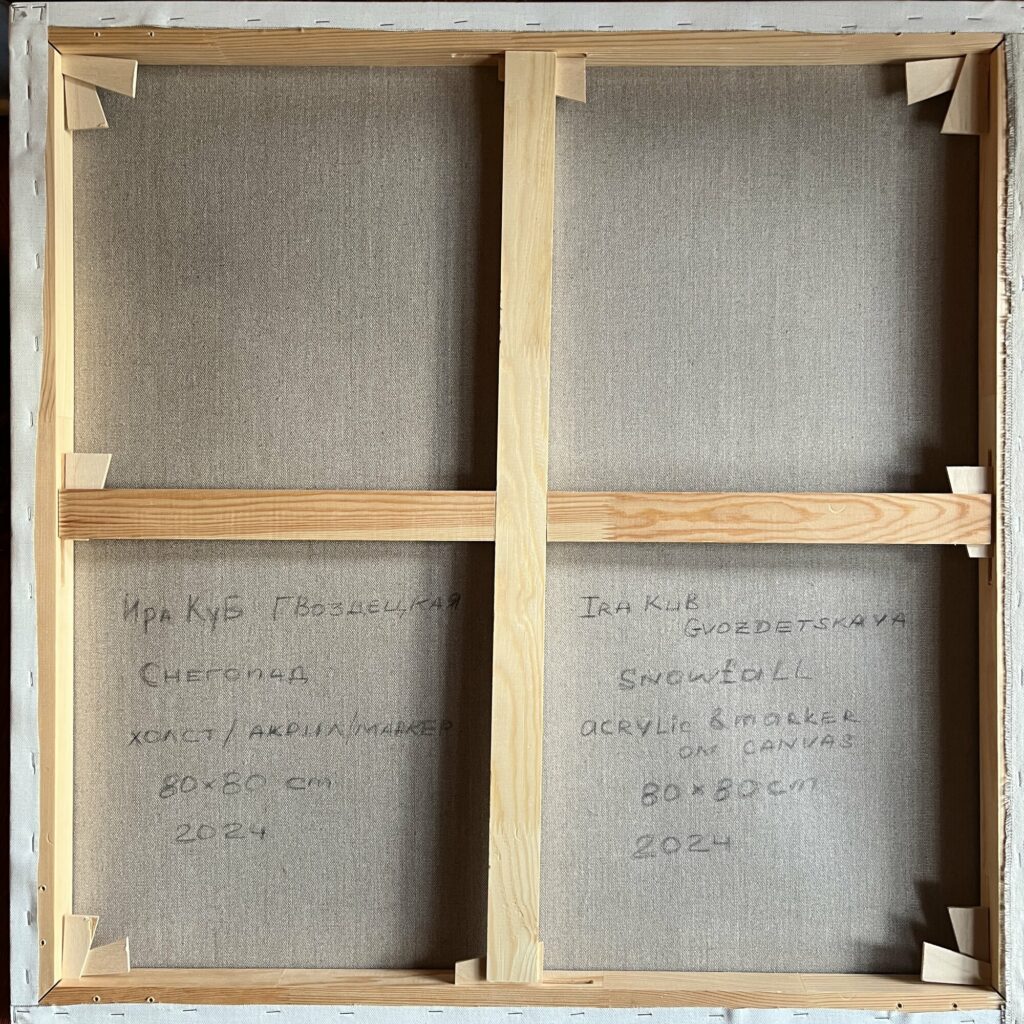 Ира Куб Гвоздецкая
Снегопад
холст/акрил/маркер
80x80 cm
2024
IRA KUB
GVOZDETSKAYA
SNOWfaLL
acrylic & marker
on canvas
80x80 cm
2024